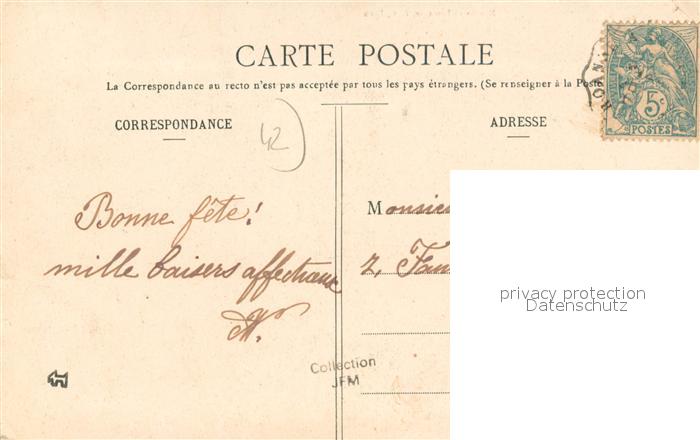 CARTE POSTALE
La Correspondance au recto n'est pas acceptée par tous les pays étrangers. (Se renseigner à la Poste
CORRESPONDANCE
ADRESSE
42
5c
POSTES
Bonne fête!
mille baisers affectueux
Monsieu
2, Fau
privacy protection
Datenschutz
Collection
JFM